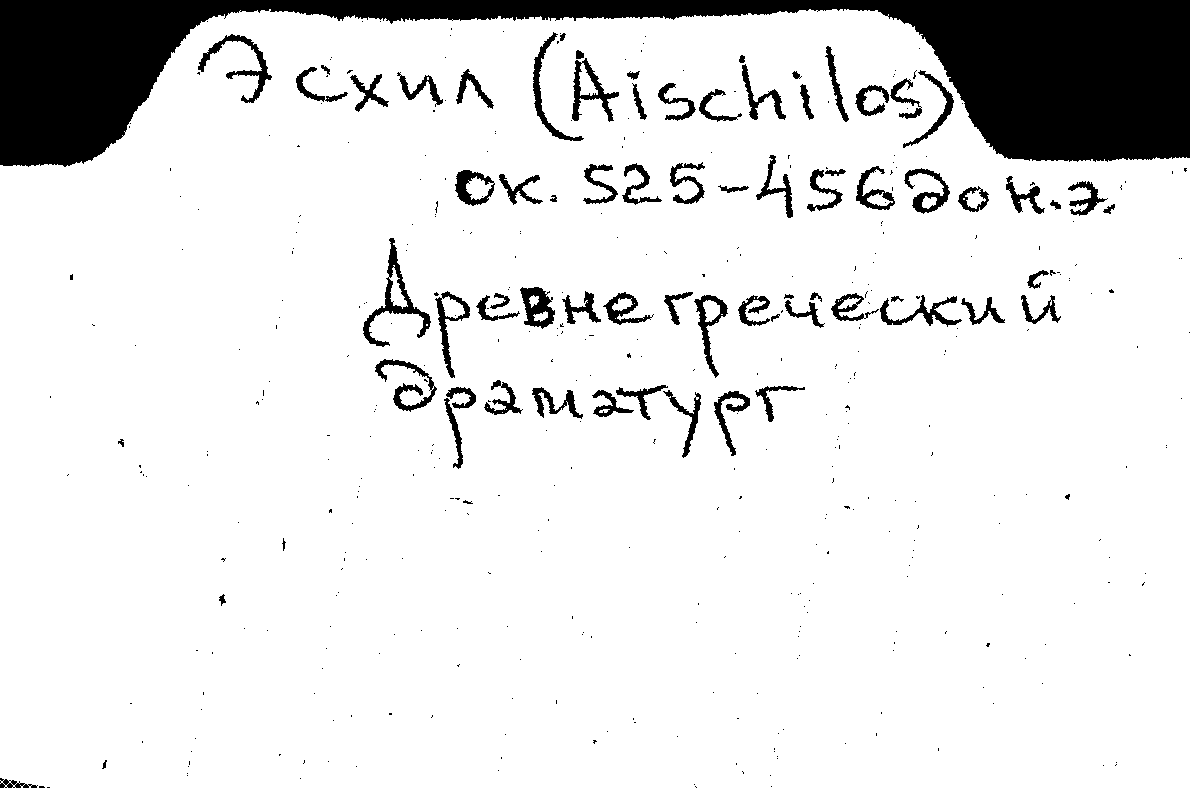 Эсхил (Aischilos)
ок. 525-456 до н.э.
Древнегреческий
драматург